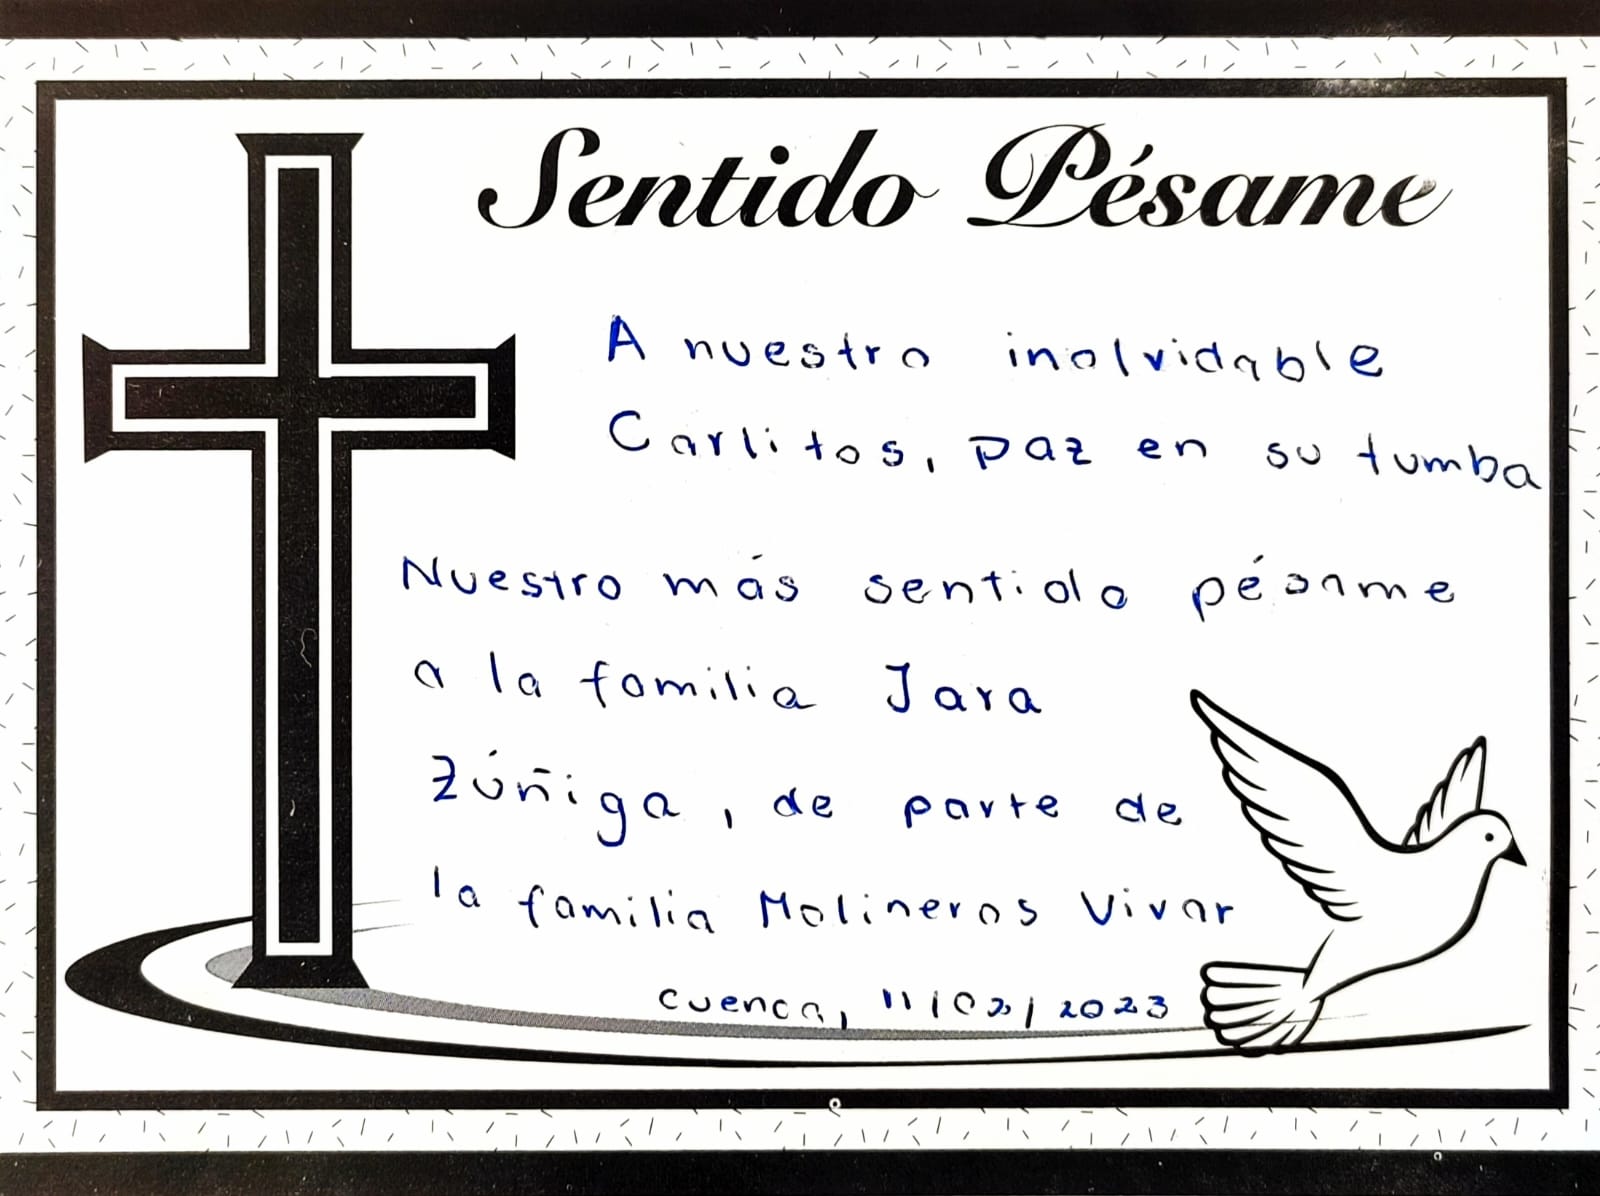 Sentido Pésame
A nuestro inolvidable
Carlitos, paz en su tumba
Nuestro más sentido pésame
a la familia Jara
Zúñiga, de parte de
la familia Molineros Vivar
Cuenca, 11/02/2023